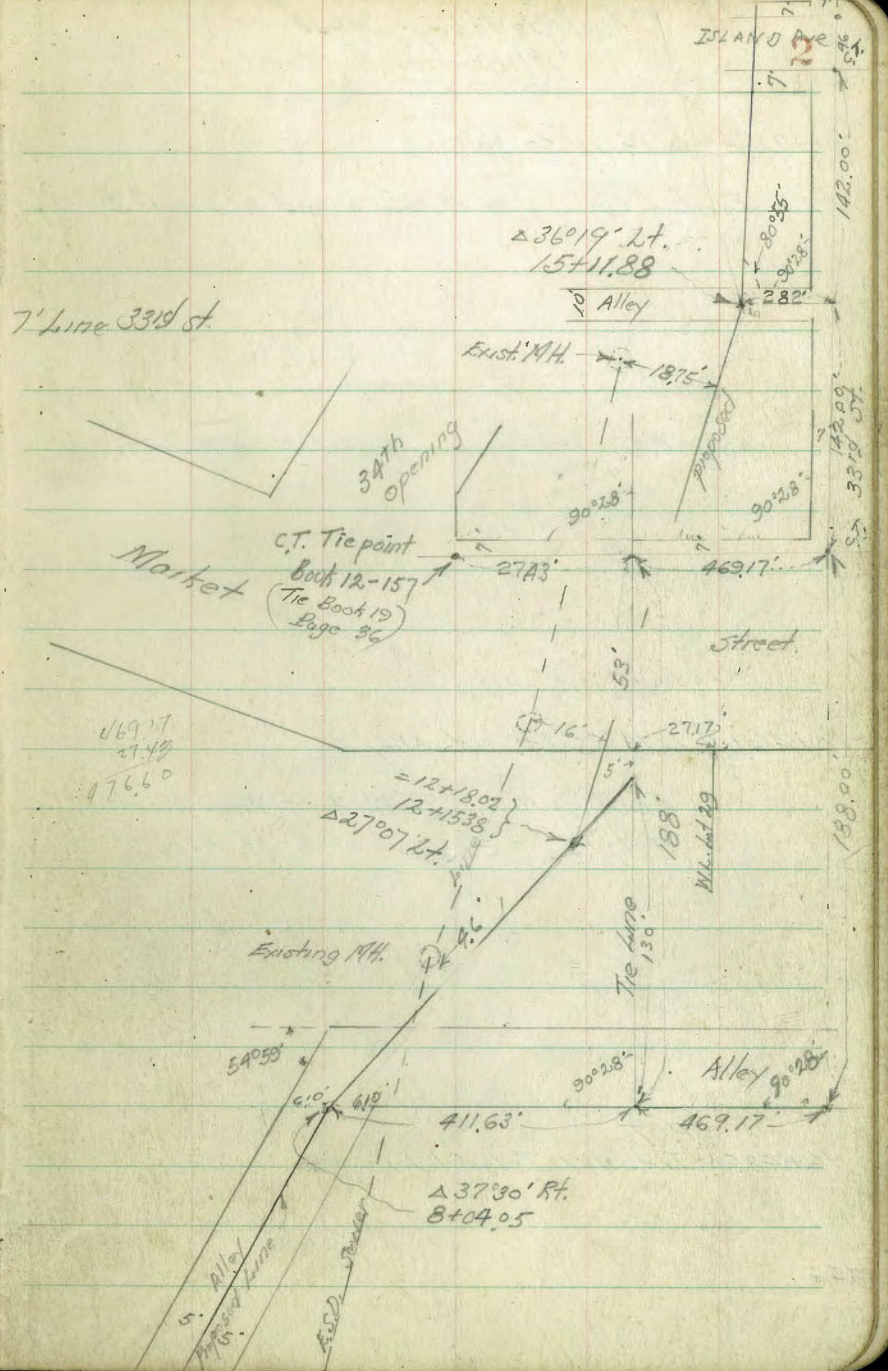 ISLAND Ave
2
7'
7'
142.00'
80°55'
90°28'
Δ36°19' Lt.
15+11.88
10'
Alley
5'
282'
7' Line 33rd St.
Exist. MH.
18.75'
Proposed
142.09'
33rd St.
7
34th
Opening
90°28'
90°28'
C.T. Tie point
Book 12-157
(Tie Book 19
Page 36)
7'
27.43'
7'
469.17'
Market
Street.
53'
469.17
27.43
476.60
16'
27.17'
5'
=12+18.02
12+15.38
Δ27°07' Lt.
188'
W.L. Lot 29
188.00'
4.6'
Existing MH.
Tie Line
130'
54°59'
90°28'
Alley
90°28'
6.0'
6.0'
411.63'
469.17'
Δ37°30' Rt.
8+04.05
Alley
Proposed Line
5'
5'
E.S.D. Sewer